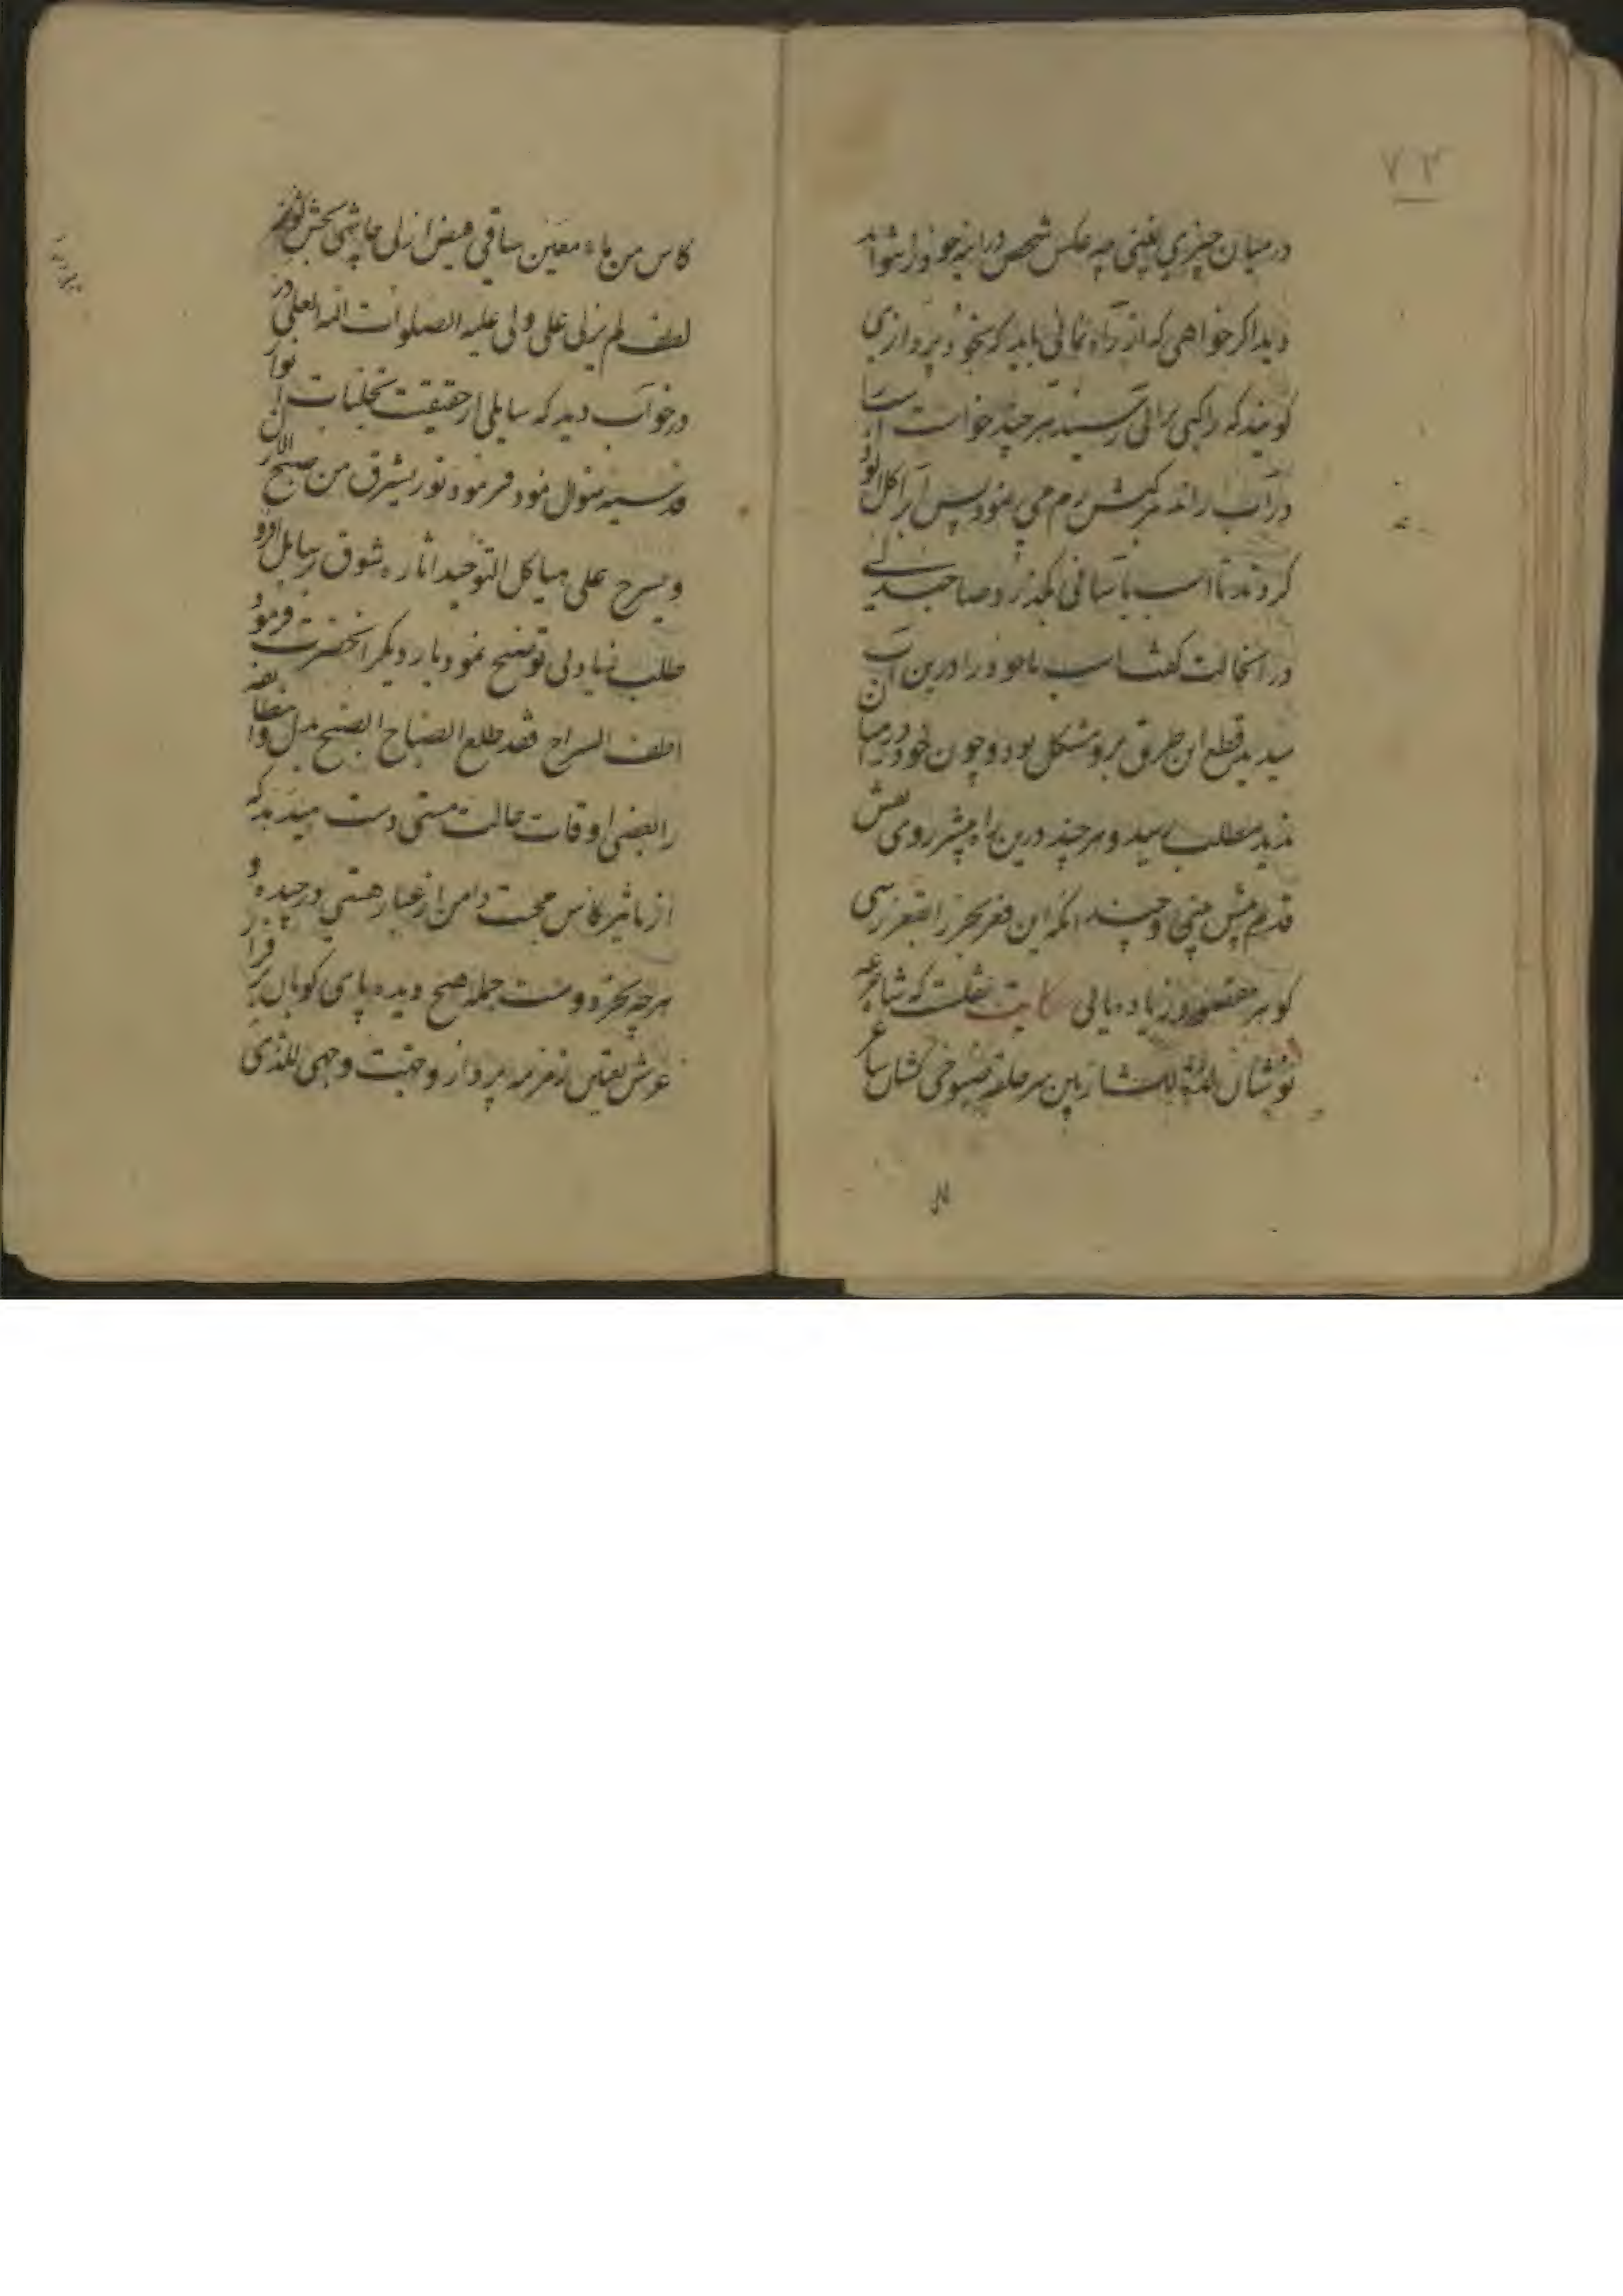 ۷۳
در میان چیزی نه بینی چه عکس شخص در آینه جز خود را نتواند
دید اگر خواهی که از راه نمانی باید که بخود نپردازی
گویند که راکبی براهی رسید هر چند خواست اسب
در آب راند مرکبش رم می نمود پس آبرا گل آلود
کردند تا اسب بآسانی بگذرد صاحبدلی
در آنحالت گفت اسب تا خود را درین آب
میدید قطع این طریق برو مشکل بود و چون خود را در میان
ندید بمطلب رسید و هر چند درین راه پیشتر روی نقش
قدم پیش بینی و چندانکه این قعر بحر را بقعر رسی
گوهر مقصود زیاده یابی حکایت نقلست که ساغر
نوشان لذة للشاربین سر حلقه صبوحی کشان
کاس من ماء معین ساقی فیض ازلی چاشنی بخش
لطف لم یزلی علی ولی علیه الصلوات الله العلی در
خواب دید که سایلی از حقیقت تجلیات انوار
قدسیه سئوال نمود فرمود نور یشرق من صبح الازل
و یسرح علی هیاکل التوحید آثاره شوق سایل افزود
طلب زیادتی توضیح نمود بار دیگر آنحضرت فرمود
اطف السراج فقد طلع الصباح الصبح
را بعضی اوقات حالت مستی دست میدهد که
از تاثیر کاس محبت دامن از غبار هستی در چیده و
هر چه بجز دوست جمله هیچ دیده پای کوبان بر فراز
عرش یقین زمزمه پرداز وجهت وجهی للذی